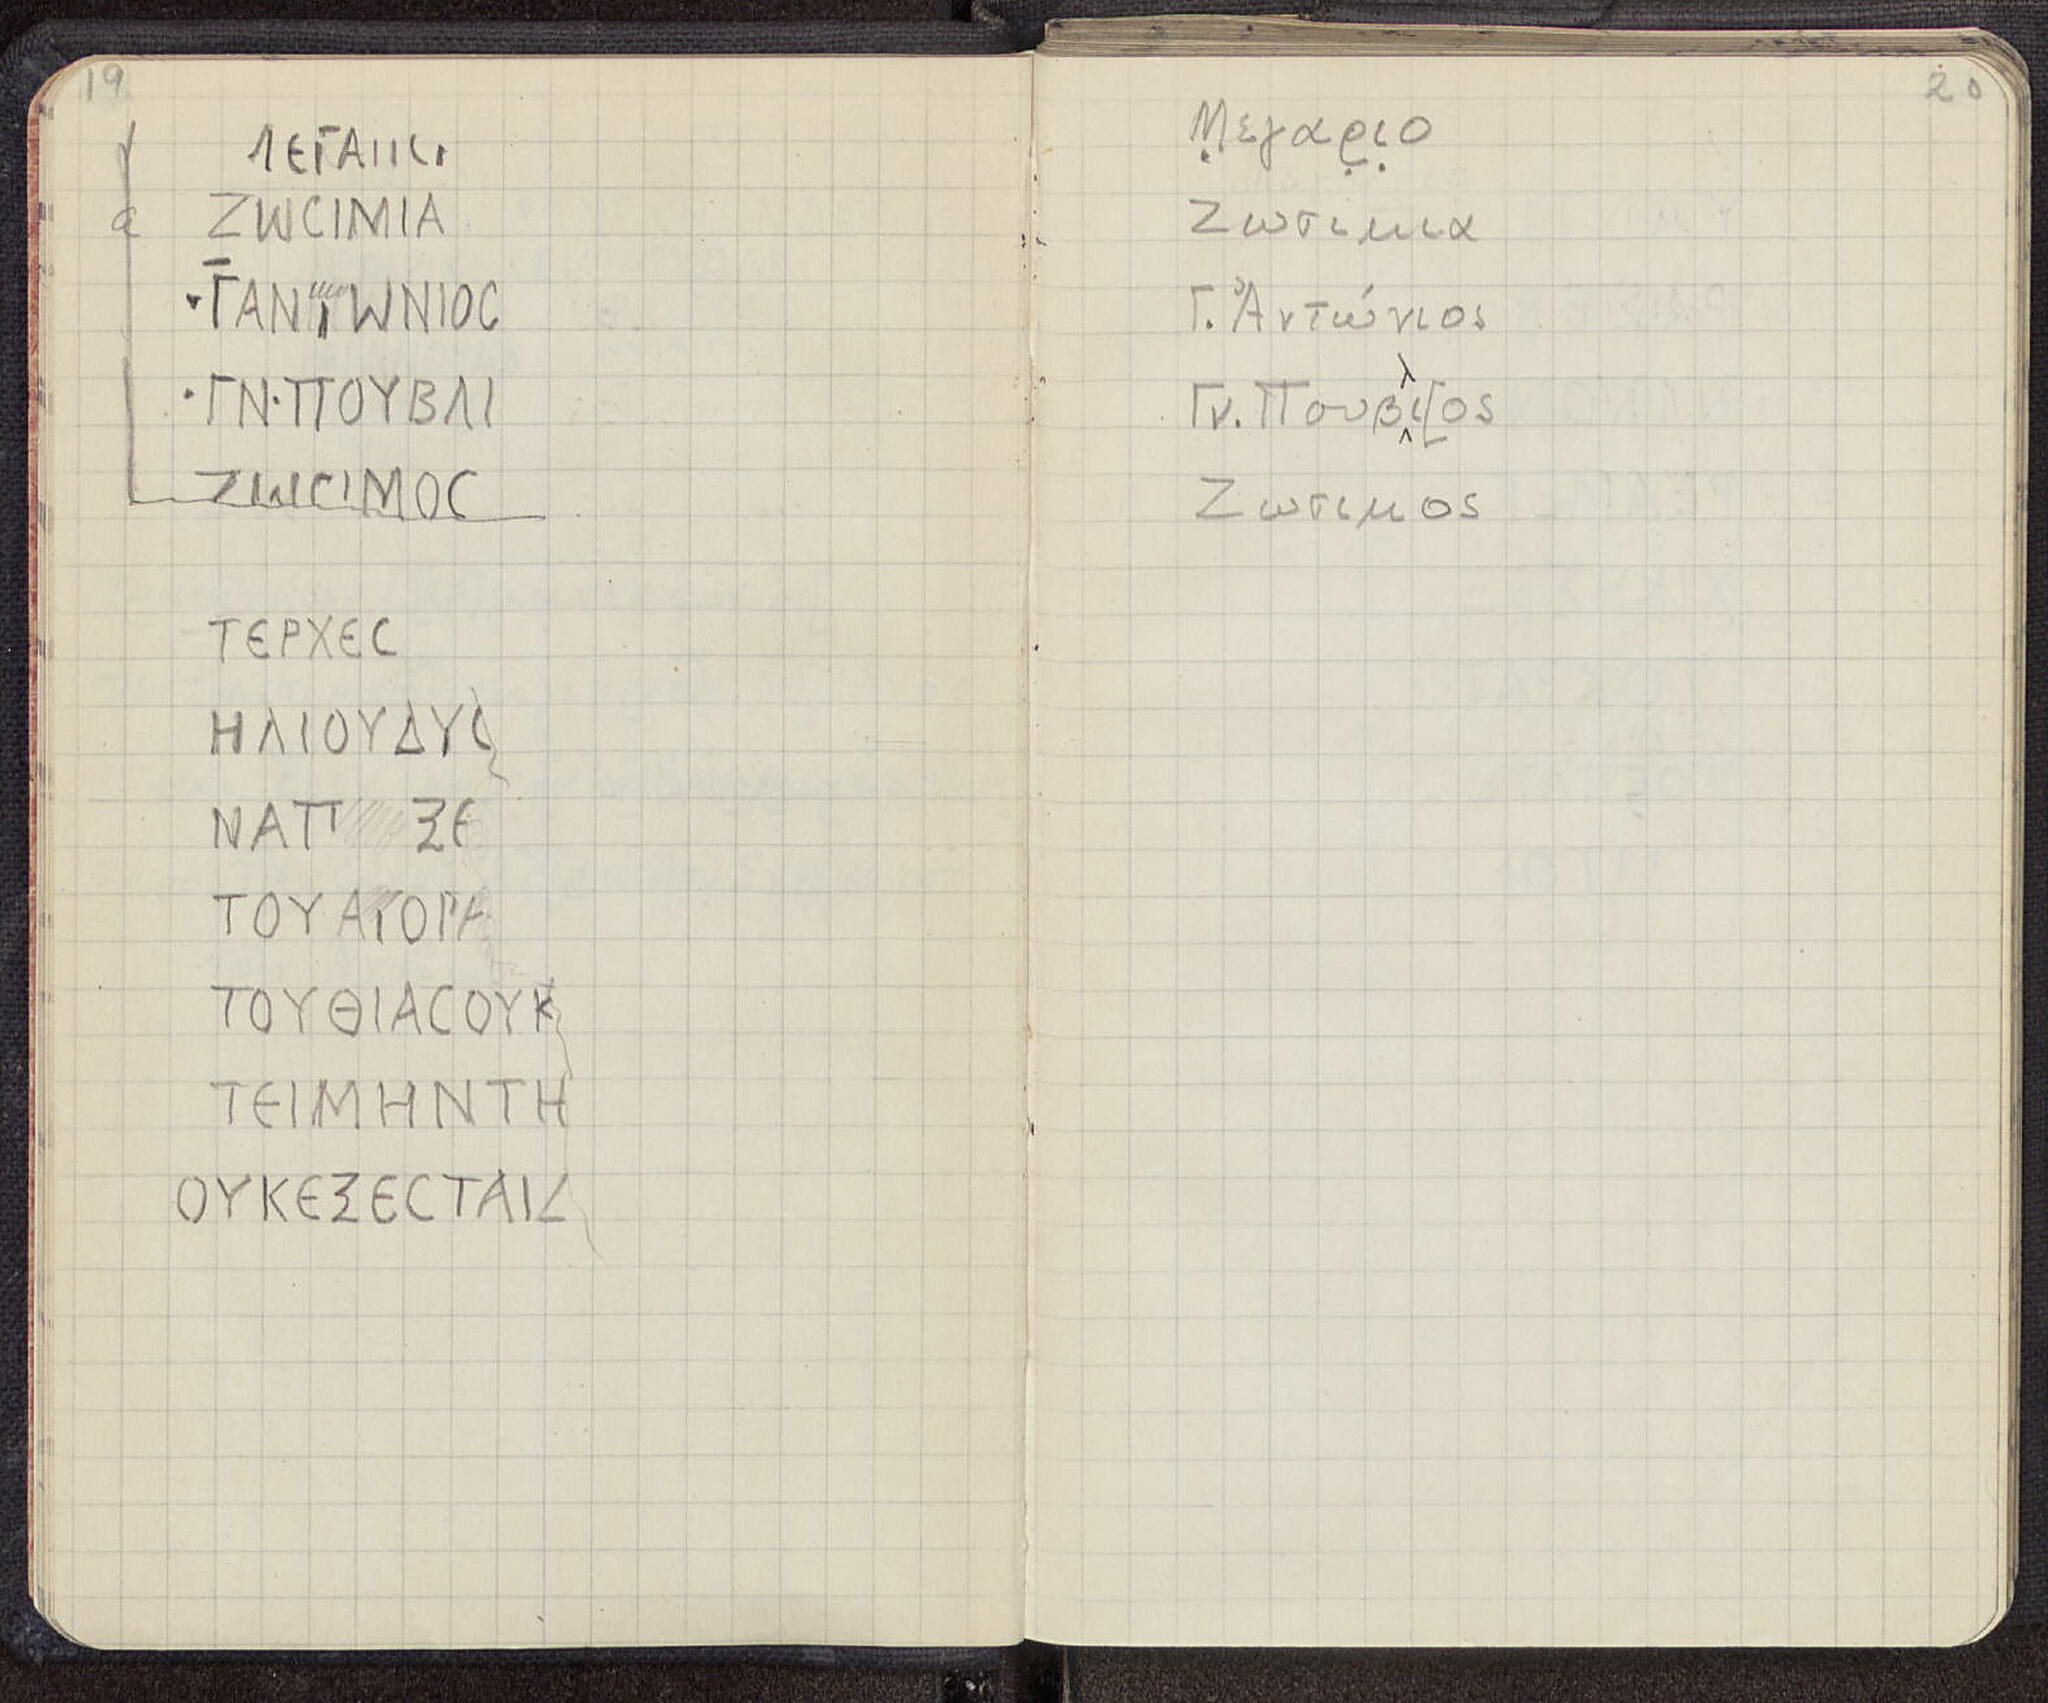 19
ΛΕΓΑΙΙϹΙ
a
ΖωϹΙΜΙΑ
·Γ̅ΑΝΤωΝΙΟϹ
·ΓΝ·ΠΟΥΒΛΙ
ΖωϹΙΜΟϹ
ΤΕΡΧΕϹ
ΗΛΙΟΥΔΥϹ
ΝΑΠ ΞΕ
ΤΟΥΑΓΟΡΑ
ΤΟΥΘΙΑϹΟΥΚ
ΤΕΙΜΗΝΤΗ
ΟΥΚΕΞΕϹΤΑΙΔ
20
Μ̣εγαρ̣ι̣ο
Ζωσιμια
Γ. Ἀντώνιος
Γν. Πουβλι[ος
Ζωσιμος